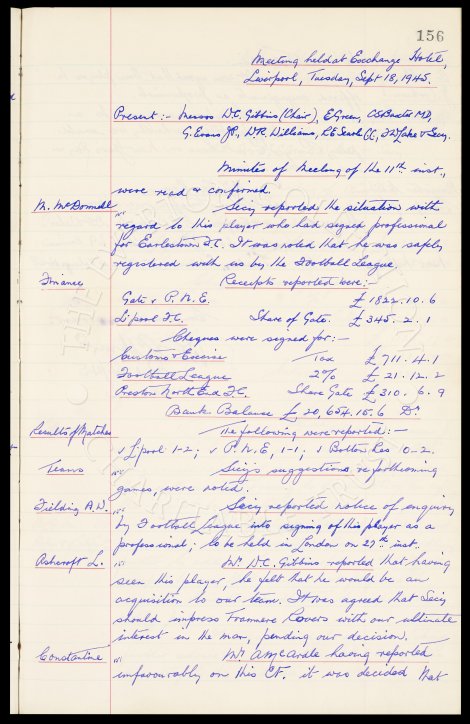 156
Meeting held at Exchange Hotel,
Liverpool, Tuesday, Sept 18, 1945.
Present :- Messrs W.C. Gibbins (Chair), E Green, C.S. Baxter MD,
G. Evans JP, W.R. Williams, R.E. Searle CC, & Secy.
Minutes of Meeting of the 11th inst.,
were read & confirmed.
M. McDonnell Secy reported the situation with
regard to this player who had signed professional
for Earlestown F.C. It was noted that he was safely
registered with us by the Football League.
Finance Receipts reported were:-
Gate v P.N.E. £ 1822.10.6
L'pool F.C. Share of Gates. £ 345. 2. 1
Cheques were signed for:-
Customs & Excise Tax £ 711. 4. 1
Football League 2% £ 21. 12. 2
Preston North End F.C. Share Gate £ 310. 6. 9
Bank Balance £ 20,654.15.6 Dr.
Results of Matches The following were reported:-
v L'pool 1-2; v P.N.E, 1-1; v Bolton Res 0-2.
Teams Secy's suggestions re forthcoming
games, were noted.
Fielding A.W. Secy reported notice of enquiry
by Football League into signing of this player as a
professional; to be held in London on 27th inst.
Ashcroft L. Mr. W.C. Gibbins reported that having
seen this player, he felt that he would be an
acquisition to our team. It was agreed that Secy
should impress Tranmere Rovers with our ultimate
interest in the man, pending our decision.
Constantine Mr. A McArdle having reported
unfavourably on this Ct. it was decided that